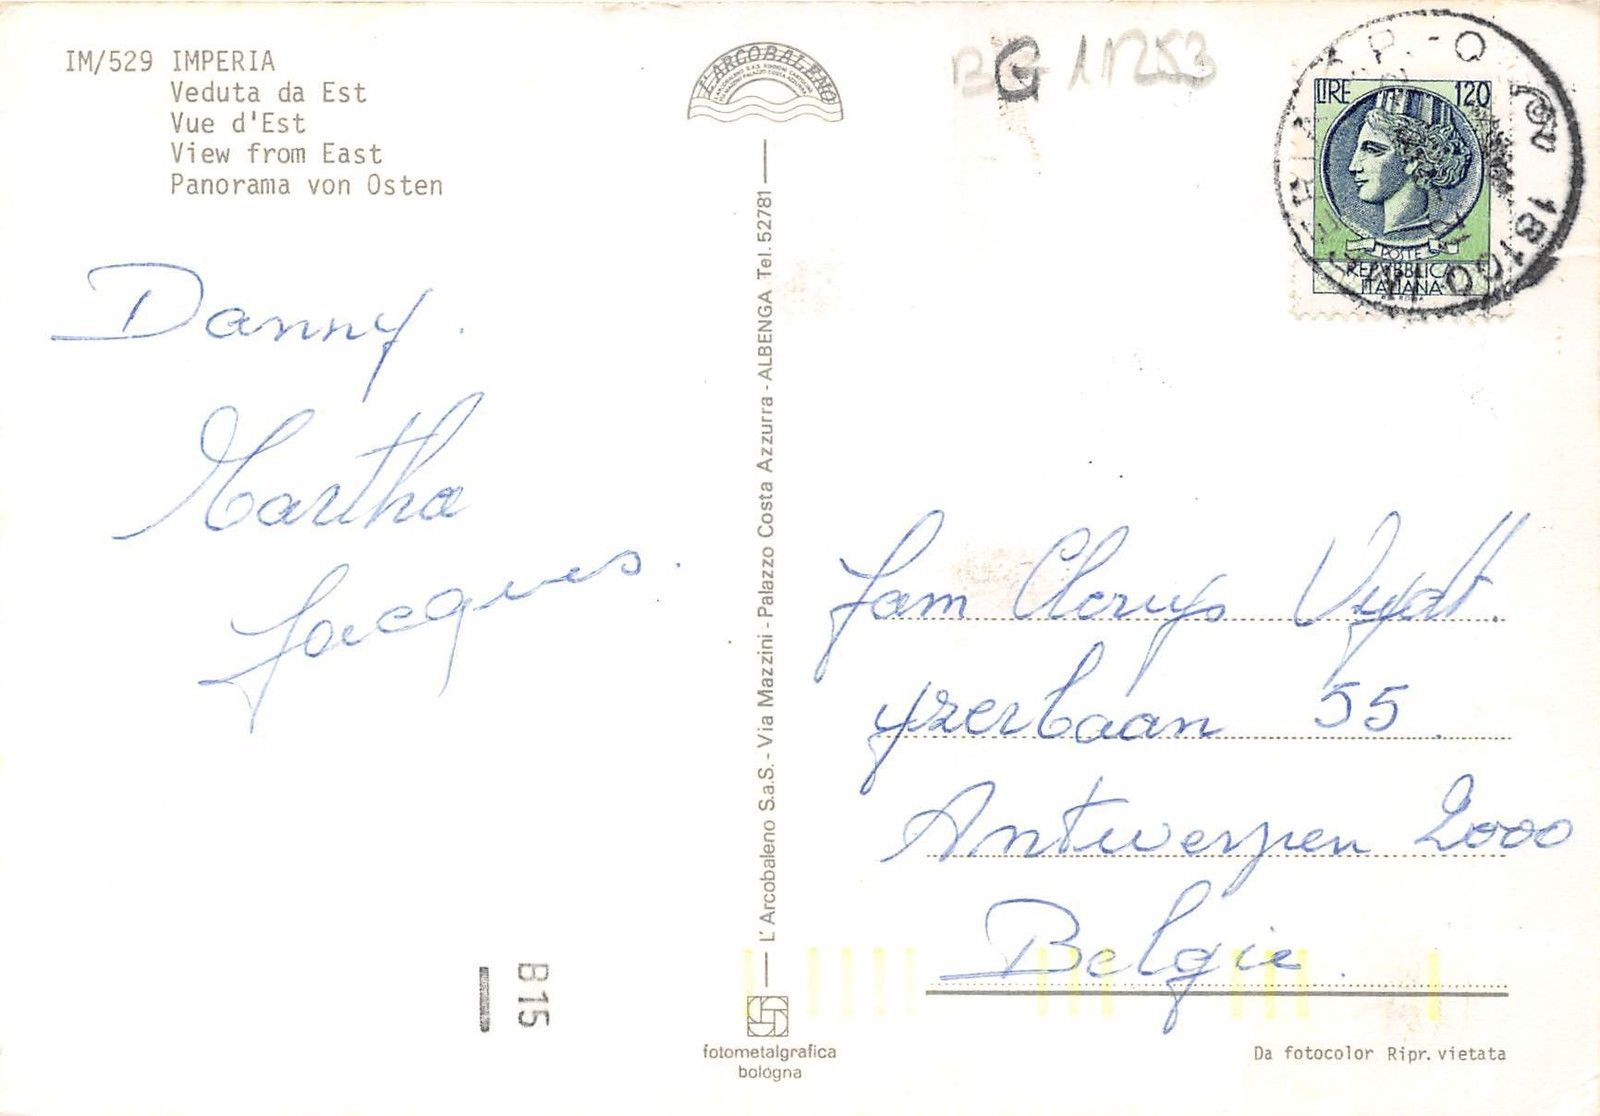 IM/529 IMPERIA
Veduta da Est
Vue d'Est
View from East
Panorama von Osten
L'ARCOBALENO
G 11253
LIRE 120
POSTE
REPVBBLICA
ITALIANA
18100
Danny.
Martha
Jacques.
L'Arcobaleno S.a.S. - Via Mazzini - Palazzo Costa Azzurra - ALBENGA Tel. 52781
Fam
Yzerlaan 55
Antwerpen 2000
Belgie.
B15
fotometalgrafica
bologna
Da fotocolor Ripr. vietata